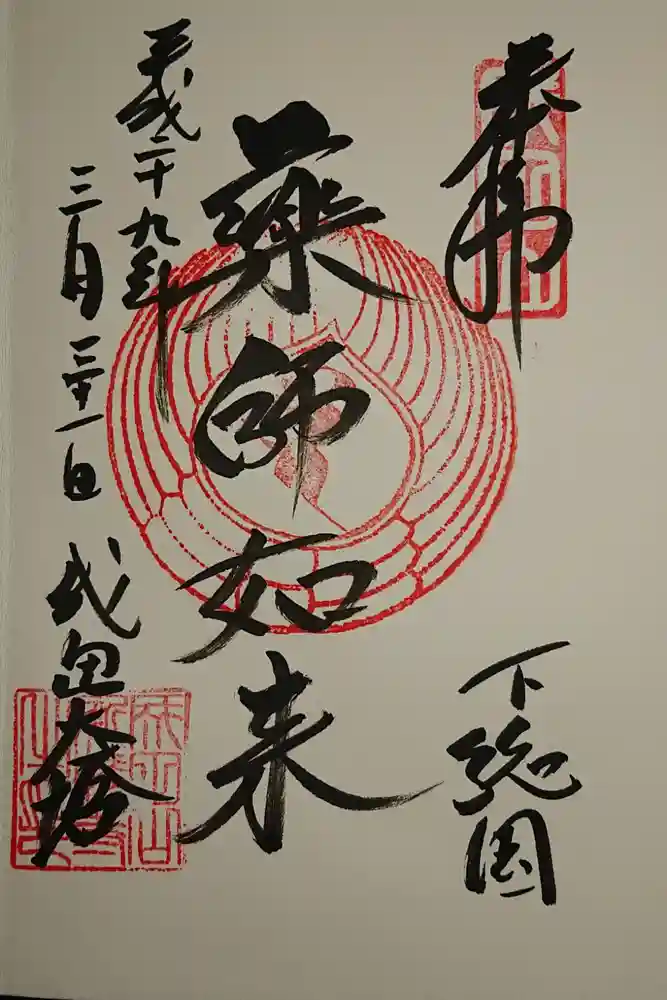 奉拝
下総国
薬師如来
平成二十九年
三月三十一日
成田山大塔